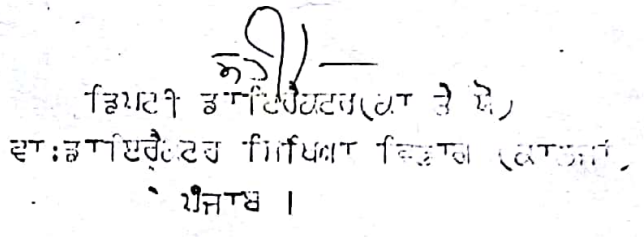 ਸਹੀ/-
ਡਿਪਟੀ ਡਾਇਰੈਕਟਰ(ਕਾ ਤੇ ਯੋ)
ਵਾ:ਡਾਇਰੈਕਟਰ ਸਿੱਖਿਆ ਵਿਭਾਗ (ਕਾਲਜਾਂ)
ਪੰਜਾਬ ।